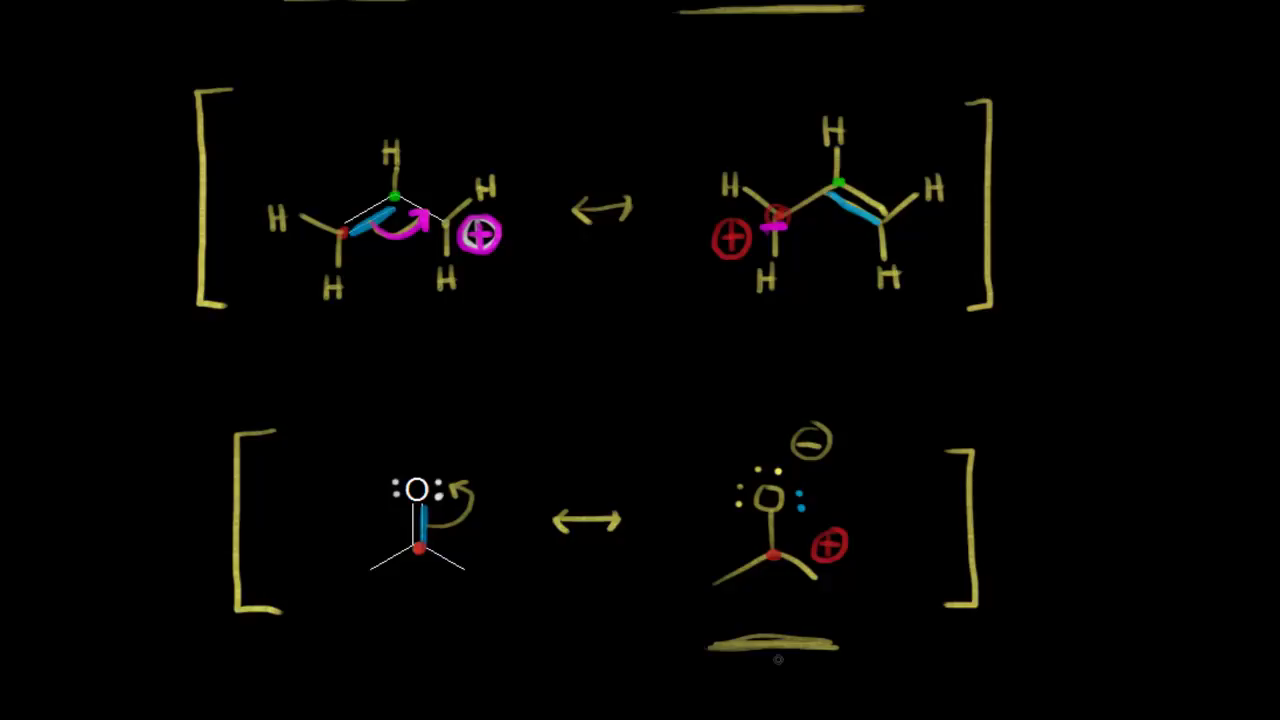 H H
H H
H H
H H
+ +
H H H H
−
:O: :O:
+